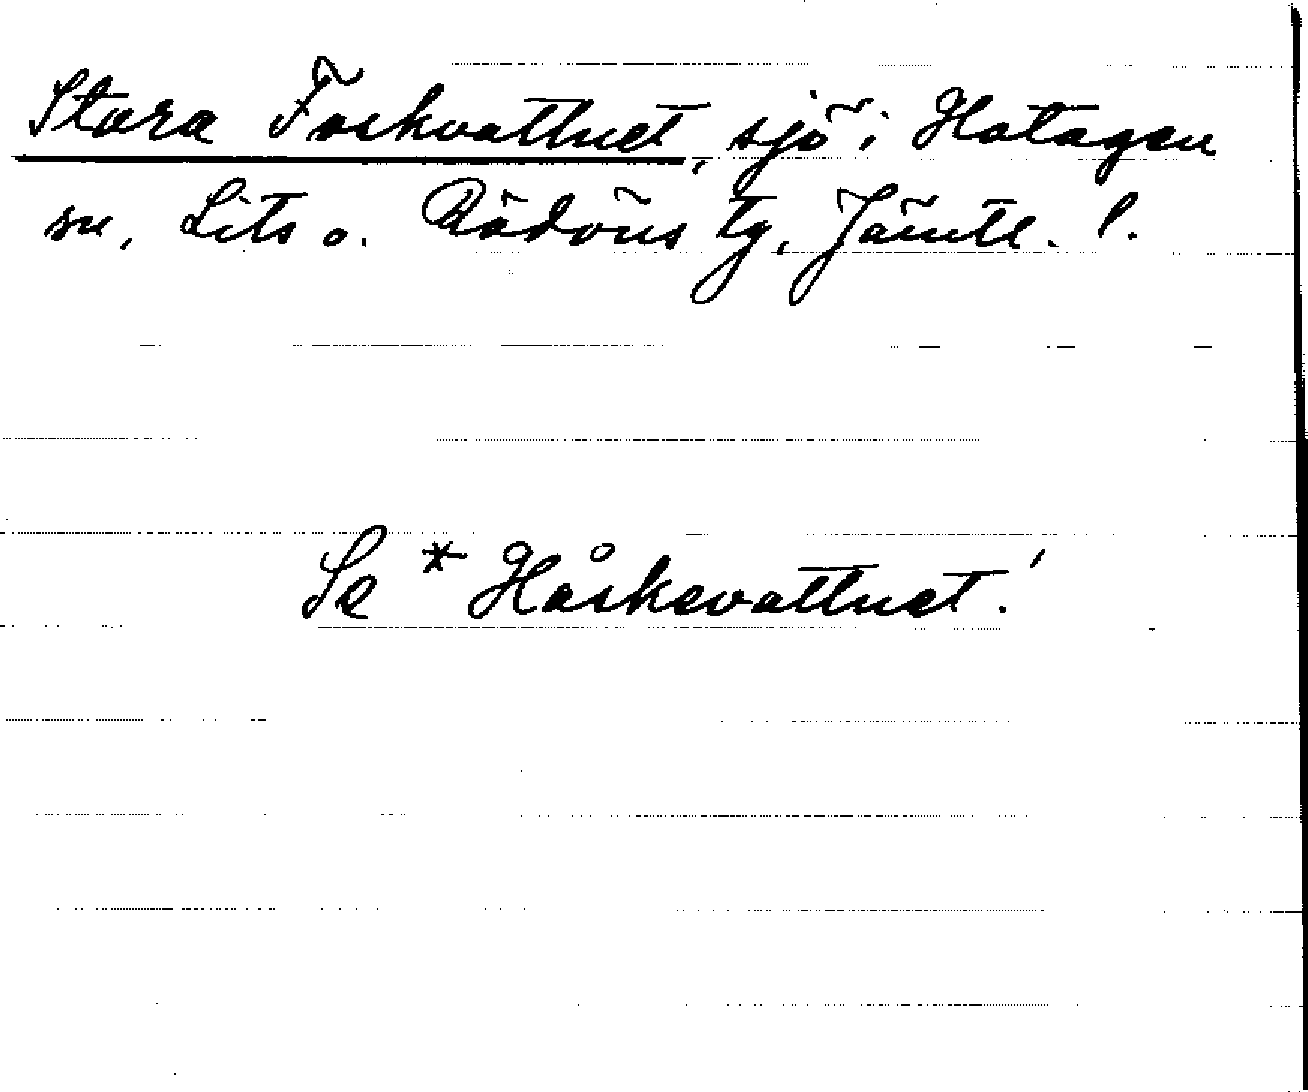 Stora Foskvattnet, sjö i Hotagen
sn, Lits o. Rödöns tg, Jämtl. l.
Se * Håskevattnet!